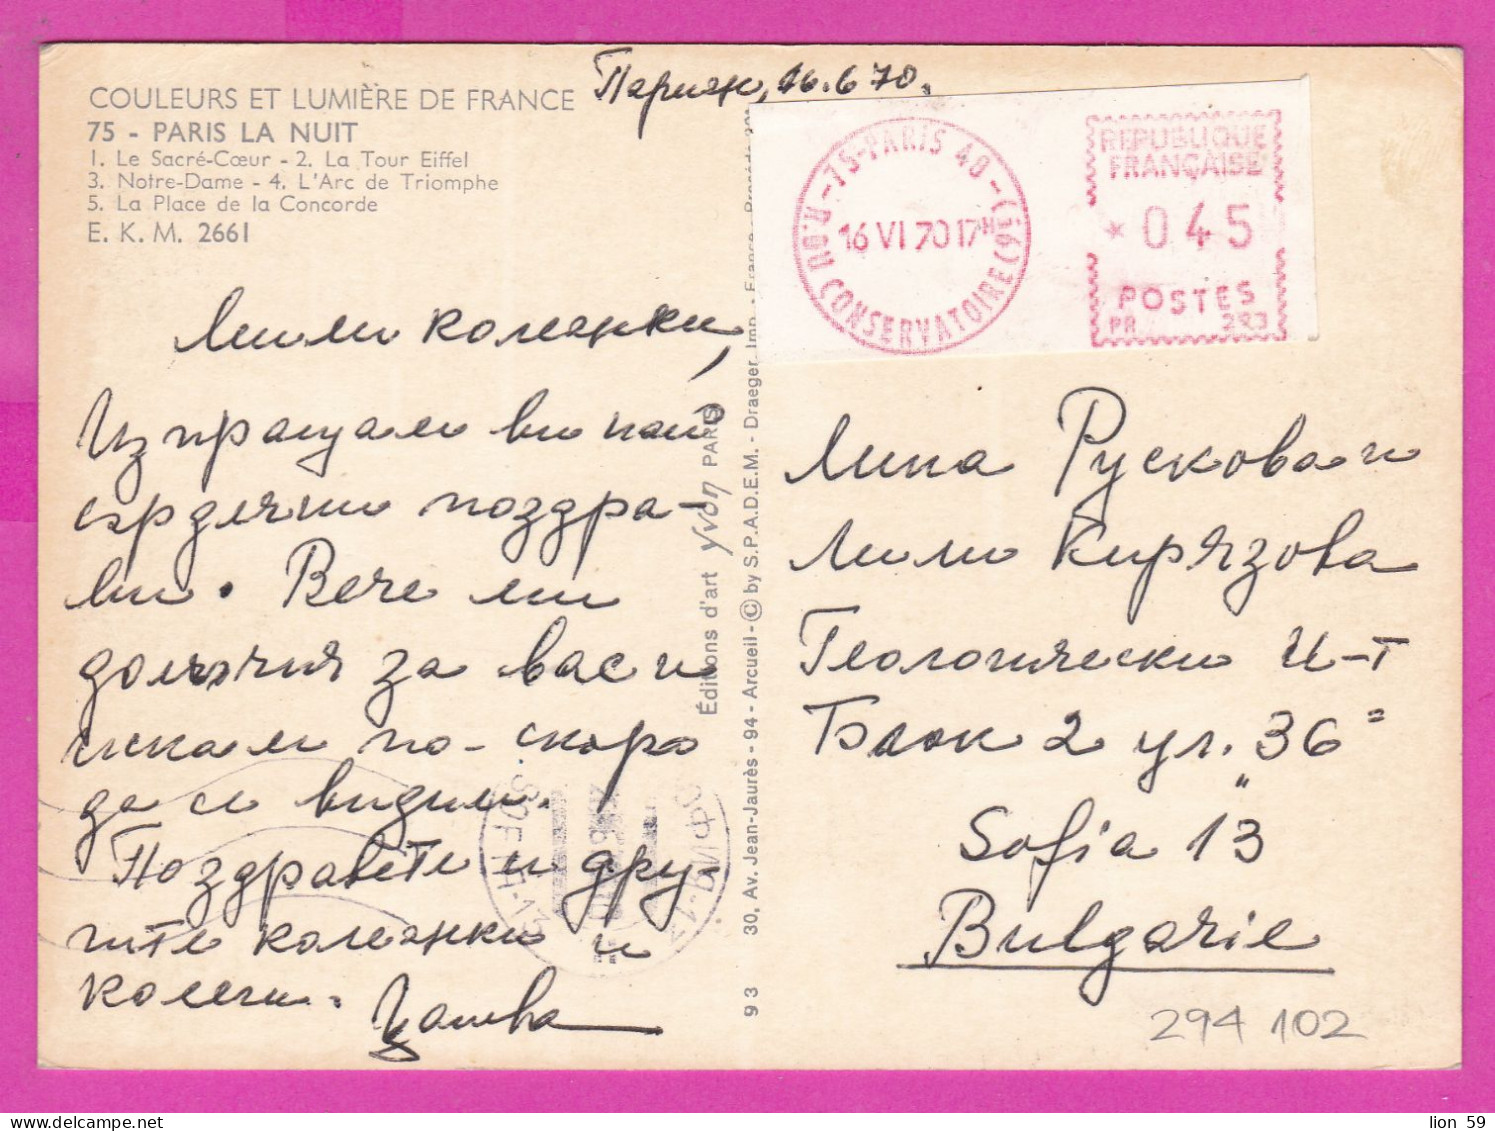 Париж, 16.6.70.
COULEURS ET LUMIÈRE DE FRANCE
75 - PARIS LA NUIT
1. Le Sacré-Cœur - 2. La Tour Eiffel
3. Notre-Dame - 4. L'Arc de Triomphe
5. La Place de la Concorde
E. K. M. 2661
Мили колежки,
Изпращам ви най-
сърдечни поздра-
ви. Вече ми
домъчня за вас и
искам по-скоро
да се видим.
Поздравете и дру-
гите колежки и
колеги.
Éditions d'art yvon PARIS
93 30, Av. Jean-Jaurès - 94 - Arcueil - © by S.P.A.D.E.M. - Draeger, Imp. - France
75-PARIS 40
R.DU CONSERVATOIRE (3e)
16 VI 70 17H
REPUBLIQUE
FRANÇAISE
* 045
POSTES
PR 293
Лина Рускова и
Лили Кирязова
Геологически И-т
Блок 2 ул. "36"
Sofia 13
Bulgarie
294 102
СОФИЯ
SOFIA
lion 59